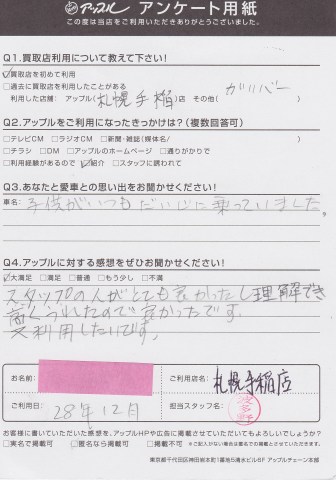 アップル アンケート用紙
この度は当店をご利用いただきありがとうございました。
Q1.買取店利用について教えて下さい!
☑買取店を初めて利用
□過去に買取店を利用したことがある
利用した店舗: アップル(札幌手稲)店 その他(ガリバー)
Q2.アップルをご利用になったきっかけは?(複数回答可)
□テレビCM □ラジオCM □新聞・雑誌(媒体名/ )
□チラシ □DM □アップルのホームページ □通りがかりで
□利用経験があるので ☑紹介 □スタッフに誘われて
Q3.あなたと愛車との思い出をお聞かせください!
車名: 子供がいつもだい心に乗っていました。
Q4.アップルに対する感想をぜひお聞かせください!
☑大満足 □満足 □普通 □もう少し □不満
スタッフの人がとても良かったし理解でき
高くうれたので良かったです。
又利用したいです。
お名前:
ご利用店名: 札幌手稲店
ご利用日: 28年12月
担当スタッフ名: 波多野
お客様に書いていただいた感想を、アップルHPや広告に掲載させていただいてもよろしいでしょうか?
□実名で掲載可 □匿名なら掲載可 □掲載不可
※ご記入がない場合は匿名で掲載させていただくことがございます。
東京都千代田区神田岩本町1番地5清水ビル6F アップルチェーン本部